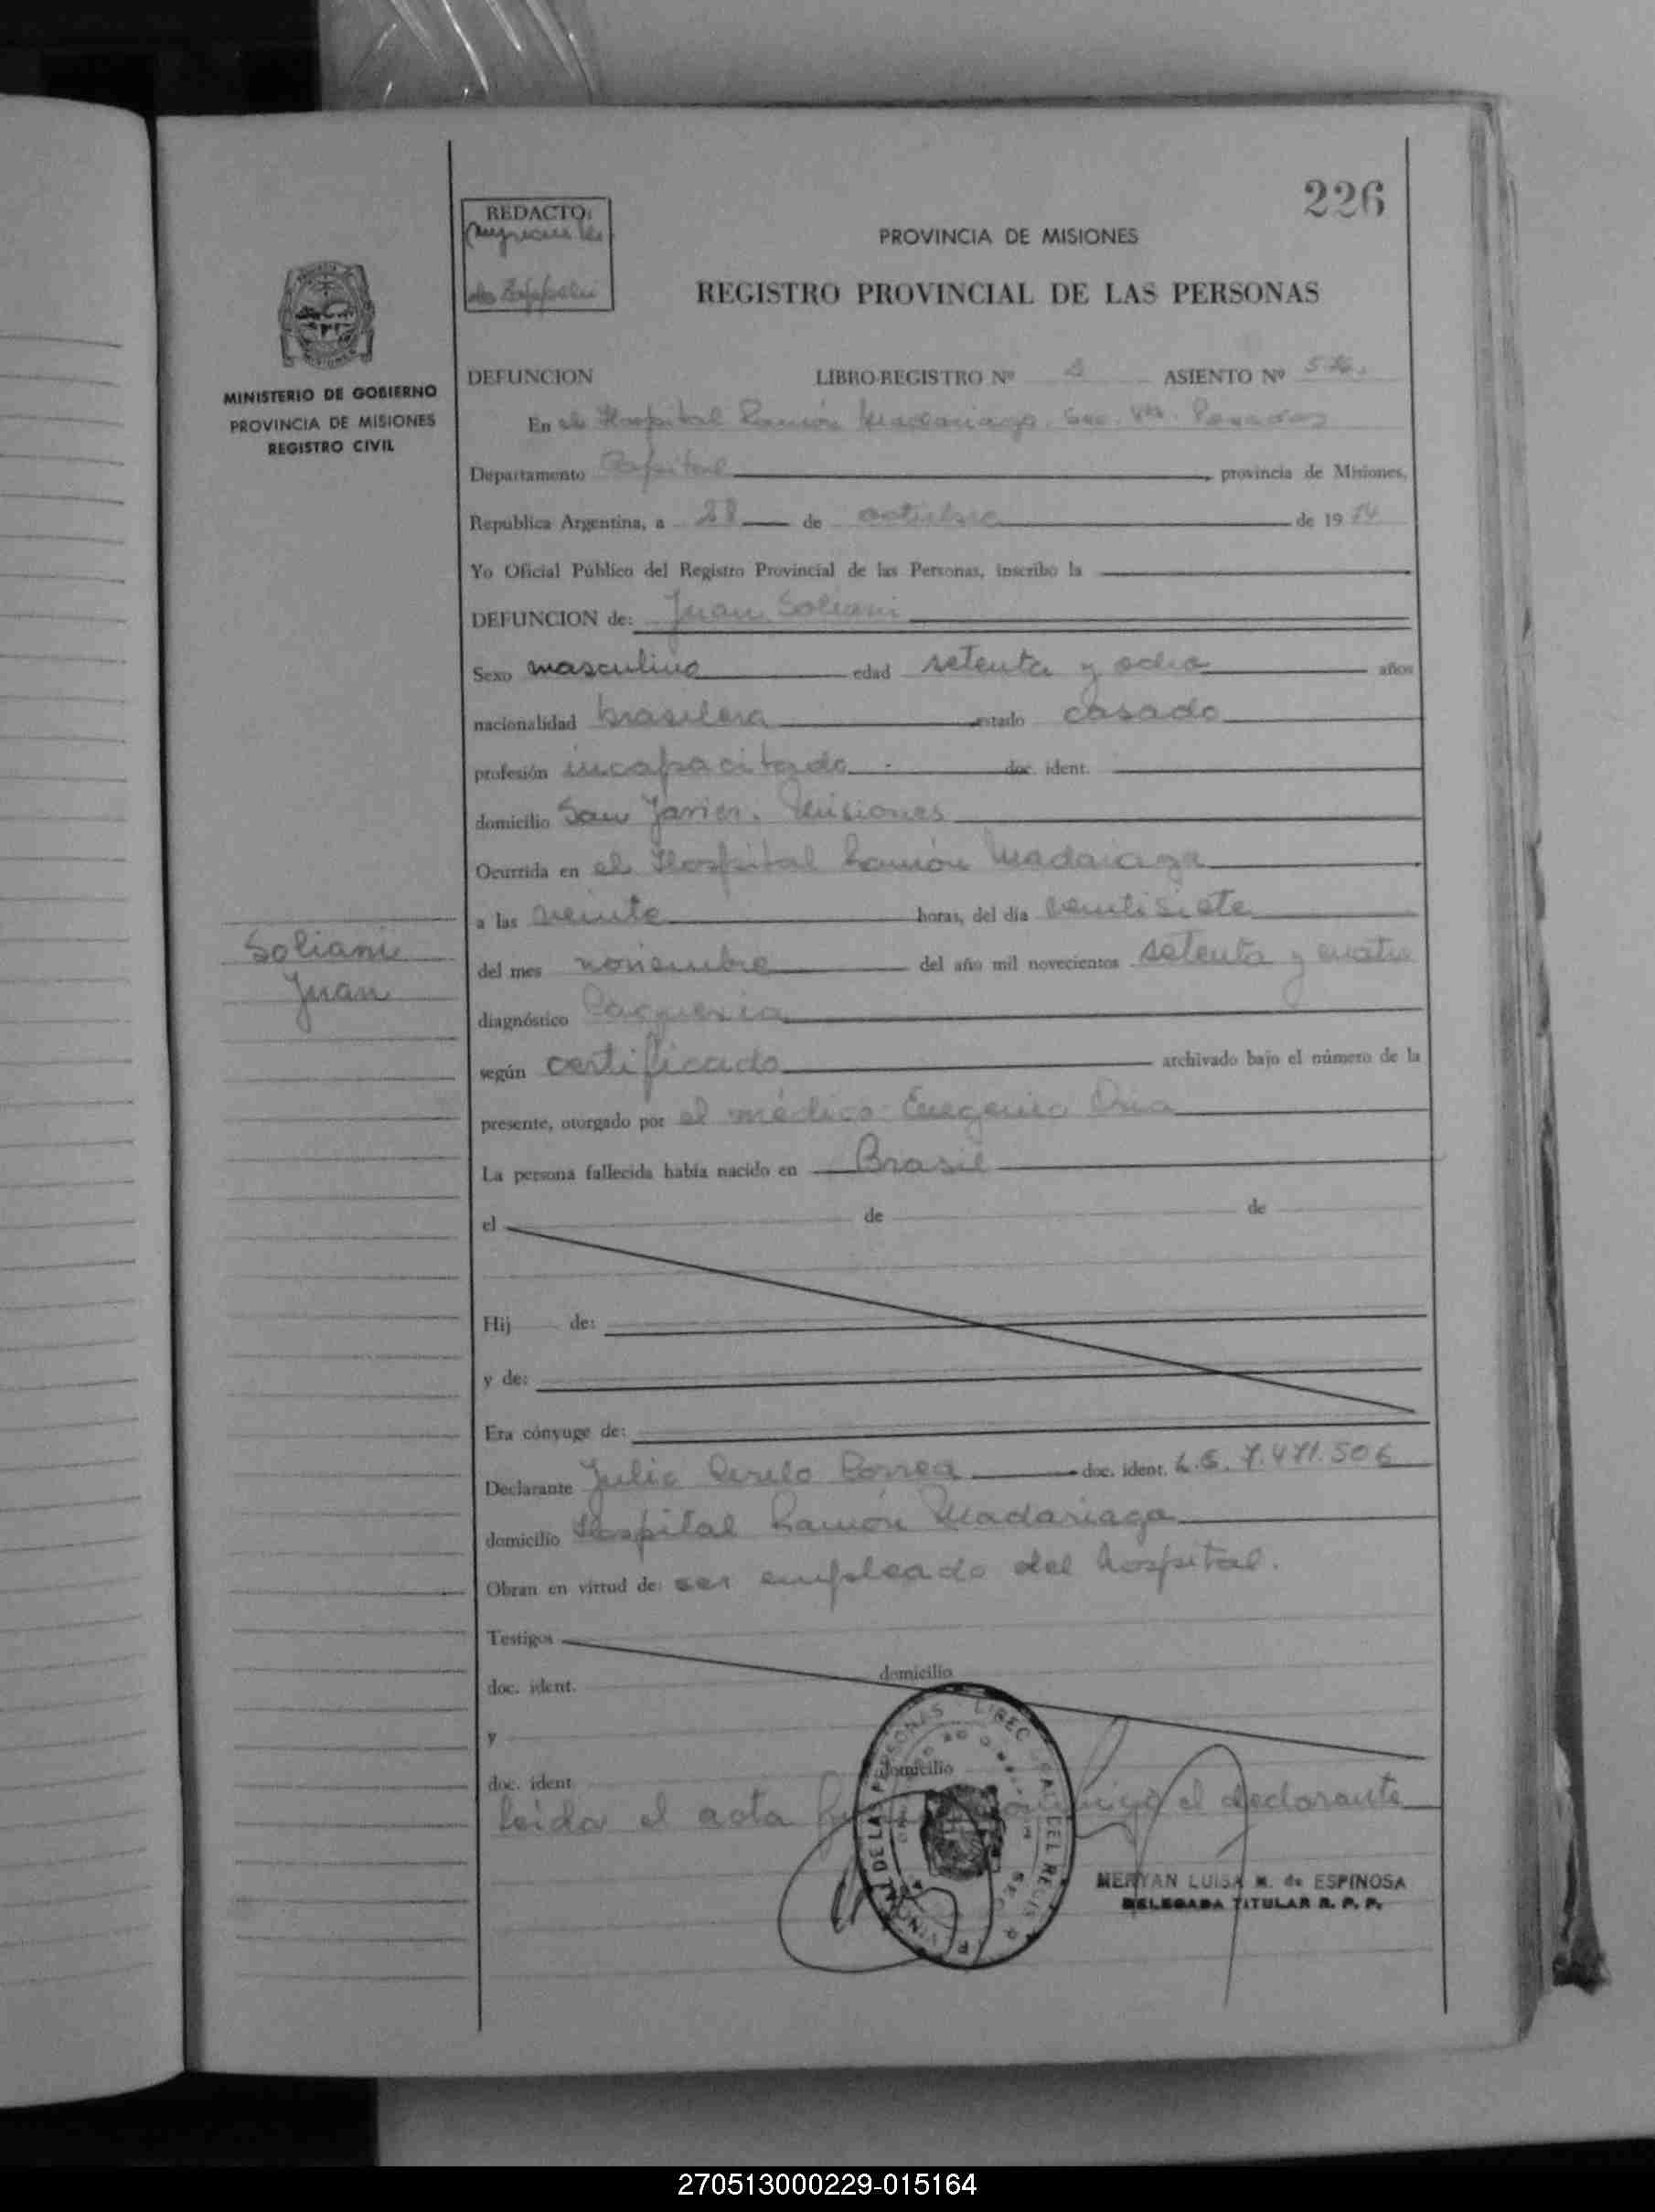 226
REDACTO:
PROVINCIA DE MISIONES
REGISTRO PROVINCIAL DE LAS PERSONAS
MINISTERIO DE GOBIERNO
PROVINCIA DE MISIONES
REGISTRO CIVIL
DEFUNCION LIBRO-REGISTRO Nº ASIENTO Nº
En el Hospital Ramón Madariaga. Sec. Posadas
Departamento Capital, provincia de Misiones,
República Argentina, a 28 de octubre de 1974
Yo Oficial Público del Registro Provincial de las Personas, inscribo la
DEFUNCION de: Juan Soliani
Sexo masculino edad setenta y ocho años
nacionalidad brasilera estado casado
profesión incapacitado. doc. ident.
domicilio San Javier. Misiones
Ocurrida en el Hospital Ramón Madariaga
a las veinte horas, del día veintisiete
Soliani
Juan
del mes noviembre del año mil novecientos setenta y cuatro
diagnóstico Caquexia
según certificado archivado bajo el número de la
presente, otorgado por el médico Eugenio
La persona fallecida había nacido en Brasil
el de de
Hij de:
y de:
Era cónyuge de:
Declarante Julio Cirilo Correa doc. ident. 7.471.506
domicilio Hospital Ramón Madariaga
Obran en virtud de: ser empleado del hospital.
Testigos
doc. ident. domicilio
y
doc. ident. domicilio
Leida el acta el declarante
MERYAN LUISA M. de ESPINOSA
DELEGADA TITULAR R. P. P.
270513000229-015164